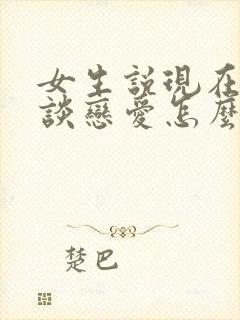 女生說現在
談戀愛怎麼
楚巴